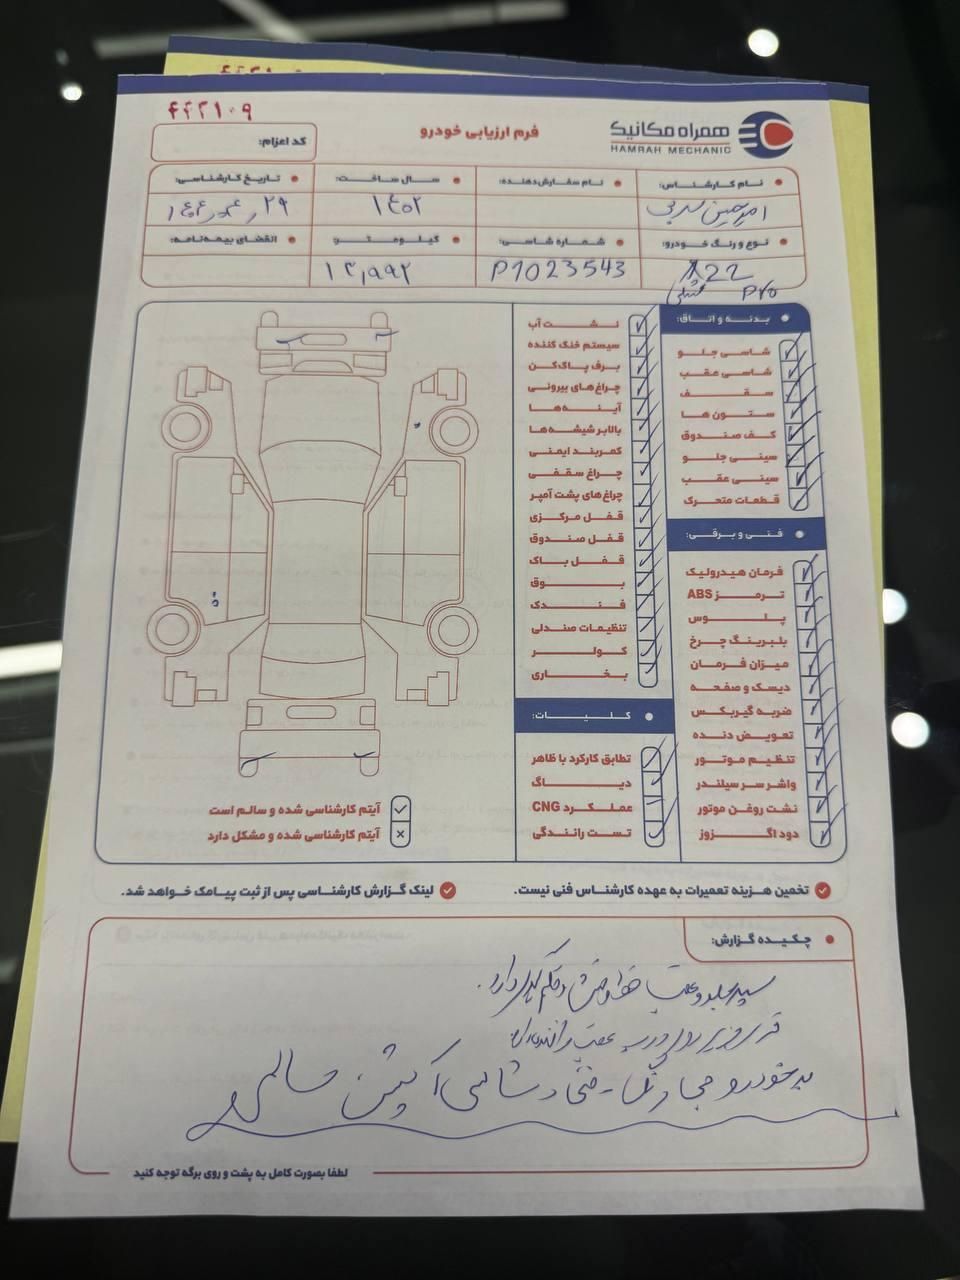 ۴۴۲۱۰۹
همراه مکانیک
HAMRAH MECHANIC
فرم ارزیابی خودرو
کد اعزام:
نام کارشناس:
نام سفارش‌دهنده:
سال ساخت:
تاریخ کارشناسی:
امیرحسین
۱۴۰۲
نوع و رنگ خودرو:
شماره شاسی:
کیلومتر:
انقضای بیمه‌نامه:
X22 Pro
مشکی
P1023543
۱۳,۹۹۲
بدنه و اتاق:
شاسی جلو
شاسی عقب
سقف
ستون ها
کف صندوق
سینی جلو
سینی عقب
قطعات متحرک
فنی و برقی:
فرمان هیدرولیک
ترمز ABS
پلوس
بلبرینگ چرخ
میزان فرمان
دیسک و صفحه
ضربه گیربکس
تعویض دنده
تنظیم موتور
واشر سر سیلندر
نشت روغن موتور
دود اگزوز
نشت آب
سیستم خنک کننده
برف پاک‌کن
چراغ‌های بیرونی
آینه‌ها
بالابر شیشه‌ها
کمربند ایمنی
چراغ سقفی
چراغ‌های پشت آمپر
قفل مرکزی
قفل صندوق
قفل باک
بوق
فندک
تنظیمات صندلی
کولر
بخاری
کلیات:
تطابق کارکرد با ظاهر
دیاگ
عملکرد CNG
تست رانندگی
آیتم کارشناسی شده و سالم است
آیتم کارشناسی شده و مشکل دارد
تخمین هزینه تعمیرات به عهده کارشناس فنی نیست.
لینک گزارش کارشناسی پس از ثبت پیامک خواهد شد.
چکیده گزارش:
سپر جلو و عقب خط و خش و دارد.
روی درب عقب راننده
خودرو رنگ - فنی و شاسی سالم
لطفا بصورت کامل به پشت و روی برگه توجه کنید